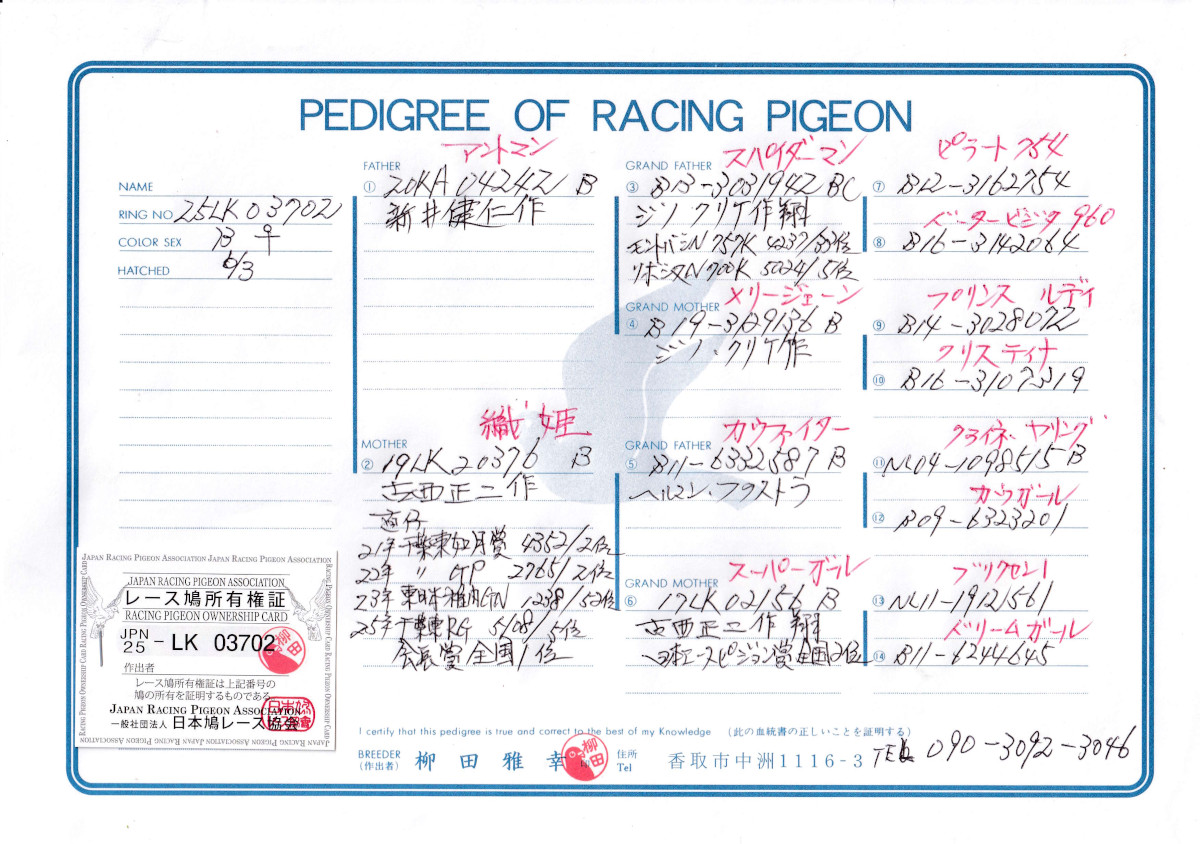 PEDIGREE OF RACING PIGEON
NAME
RING NO 25LK03702
COLOR SEX B ♀
HATCHED 6/3
FATHER アントマン
① 20KA 04242 B
新井健仁作
MOTHER 織姫
② 19LK20376 B
古西正二作
直仔
21年千葉東如月賞 4352/2位
22年 〃 GP 2765/2位
23年 東日本稚内GN 1238/52位
25年千葉東RG 5108/5位
会長賞全国1位
GRAND FATHER スパイダーマン
③ B13-3031942 BC
ジノ クリケ作翔
モントバンN 757K 4237/33位
リボンヌN 700K 5024/5位
GRAND MOTHER メリージェーン
④ B19-3129136 B
ジノ・クリケ作
GRAND FATHER カウファイター
⑤ B11-6332587 B
ヘルマン・フクストラ
GRAND MOTHER スーパーガール
⑥ 17LK02156 B
古西正二作 翔
日本エースピジョン賞全国2位
ピラート754
⑦ B12-3162754
ベータービジタ960
⑧ B16-3142064
プリンス ルディ
⑨ B14-3028072
クリスティナ
⑩ B16-3107319
クライネ・ヤリング
⑪ NL04-1098515 B
カウガール
⑫ B09-6323201
ブリクセン1
⑬ NL11-1912561
ドリームガール
⑭ B11-6244645
JAPAN RACING PIGEON ASSOCIATION JAPAN RACING PIGEON ASSOCIATION
JAPAN RACING PIGEON ASSOCIATION
レース鳩所有権証
RACING PIGEON OWNERSHIP CARD
JPN
25 - LK 03702
柳田
作出者
レース鳩所有権証は上記番号の
鳩の所有を証明するものである
JAPAN RACING PIGEON ASSOCIATION
一般社団法人 日本鳩レース協会
I certify that this pedigree is true and correct to the best of my Knowledge (此の血統書の正しいことを証明する)
BREEDER
(作出者) 柳田雅幸 印
柳田
住所
Tel 香取市中洲1116-3 TEL 090-3092-3046